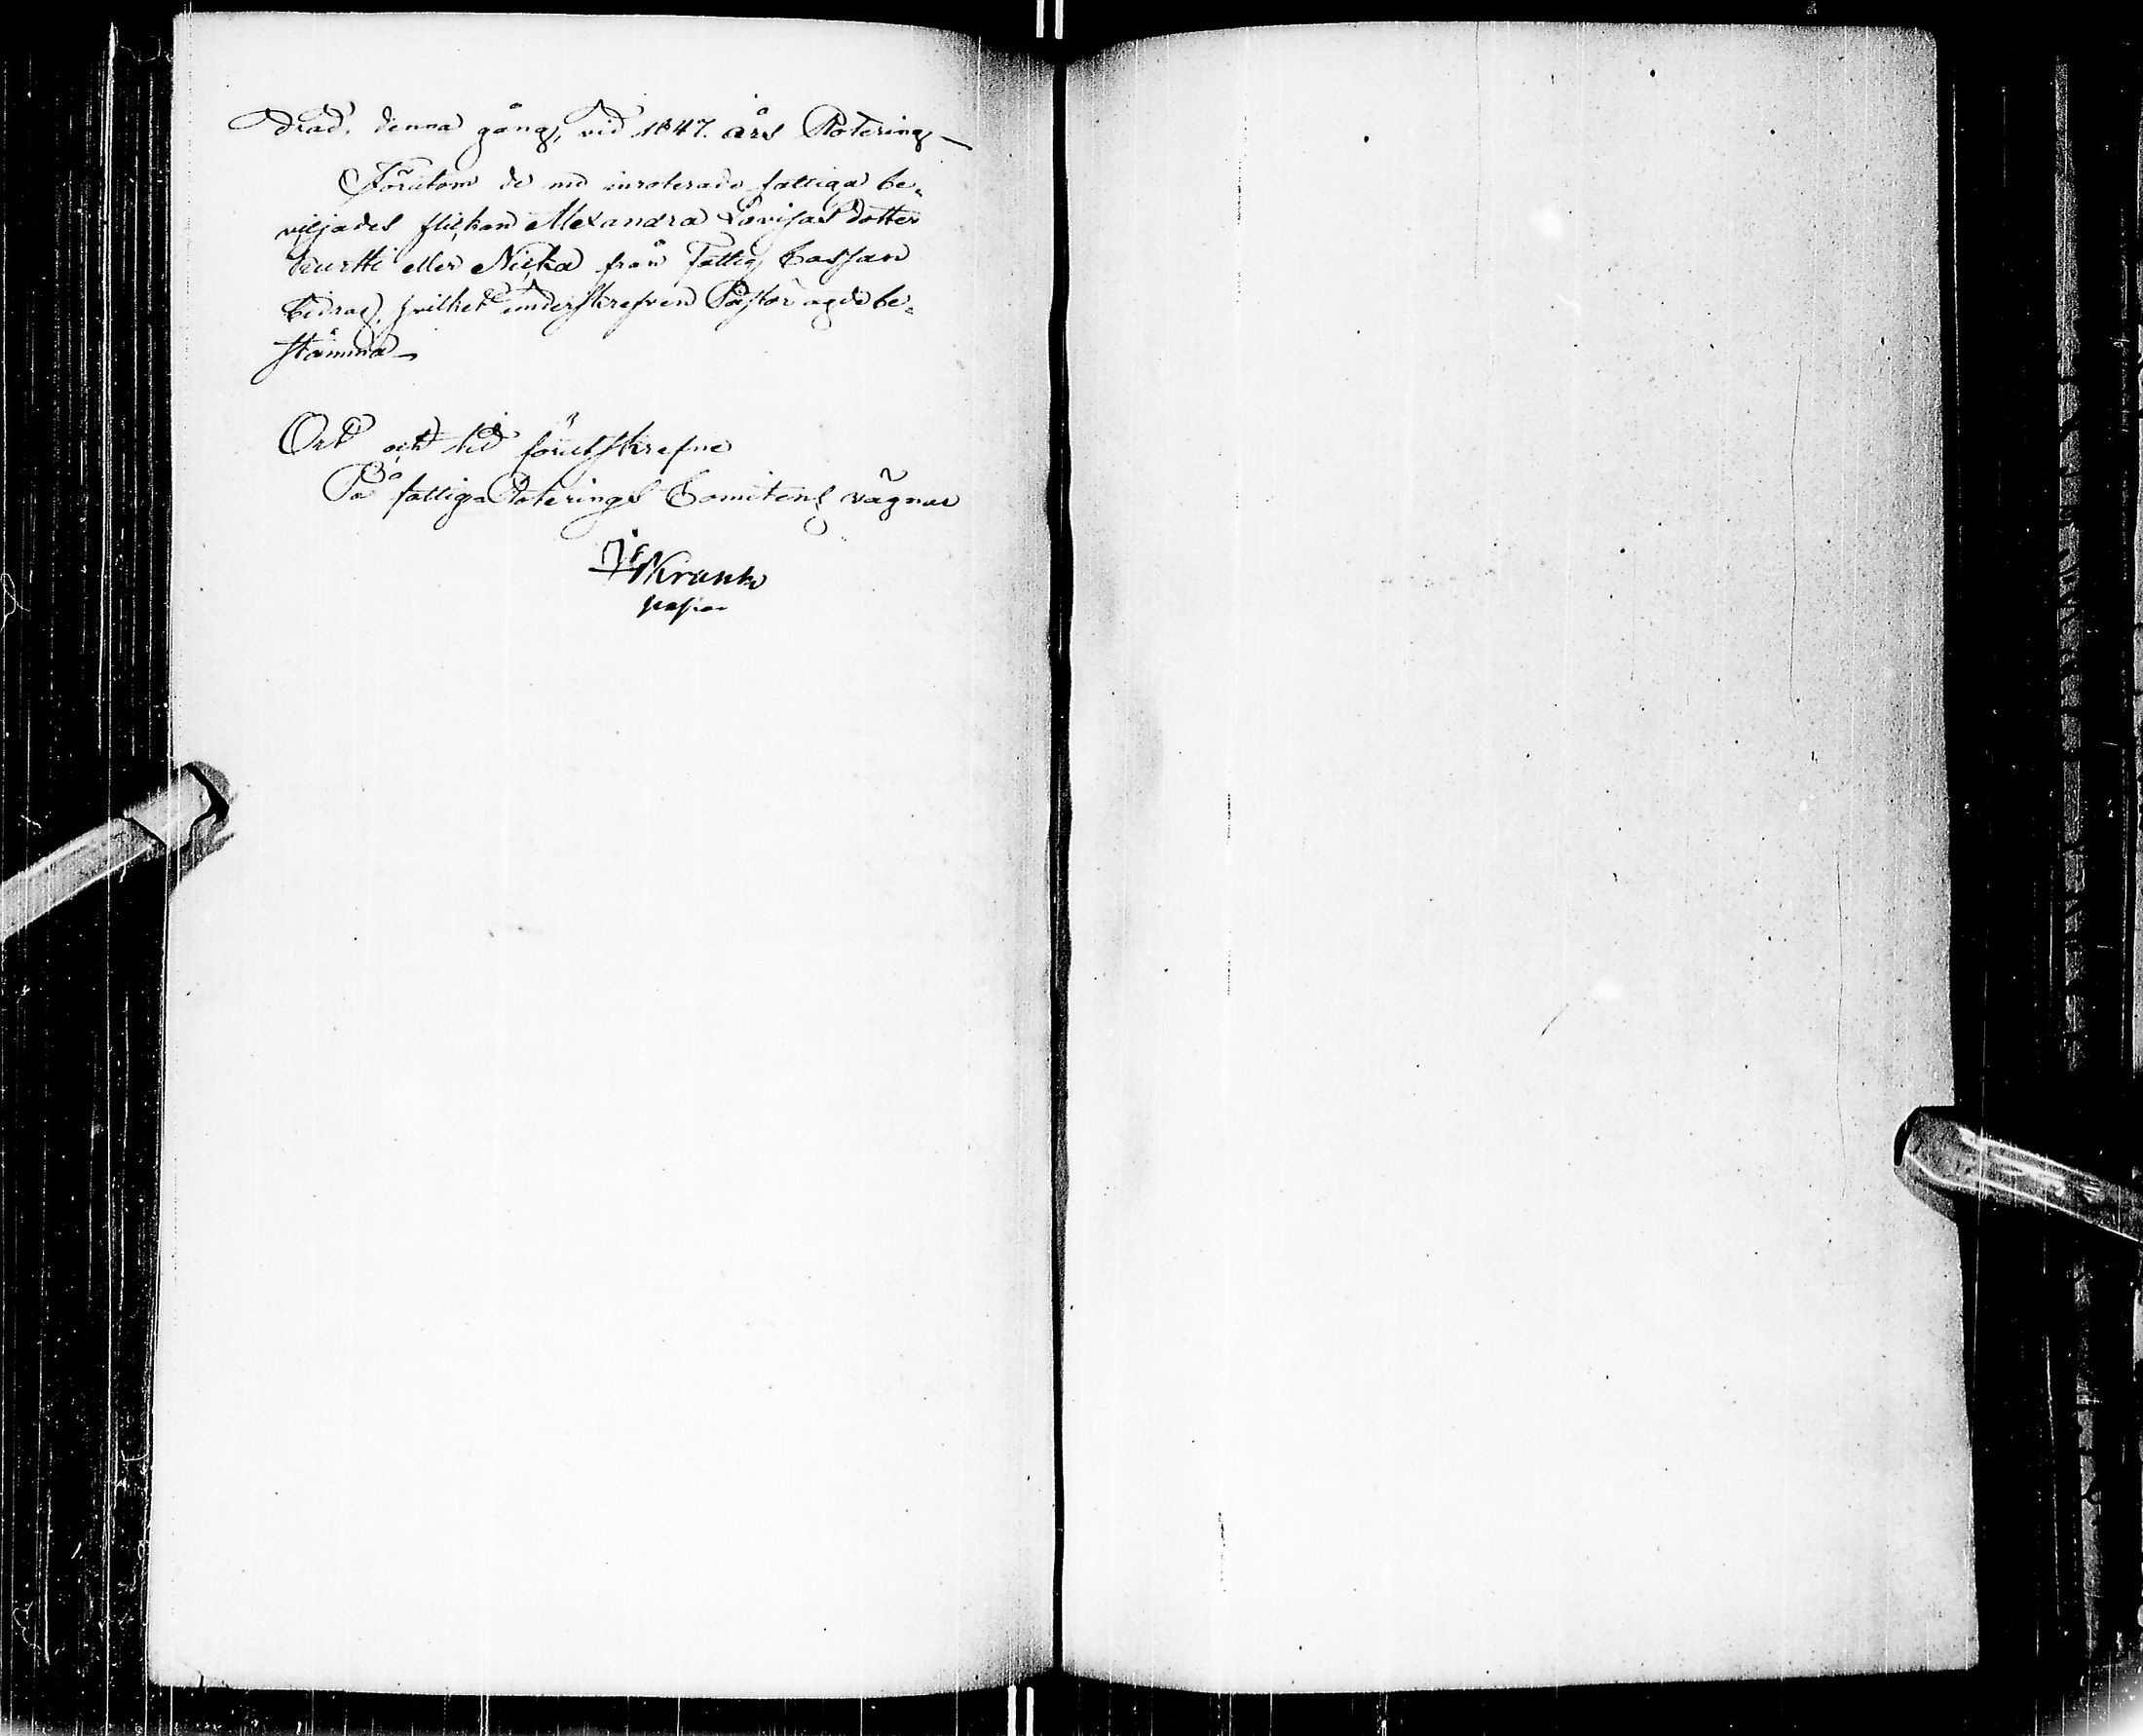 drad, denna gång, vid 1847. års Rotering —
Förutom de nu inroterade fattiga be-
viljades flickan Alexandra Lovisas dotter
eller Nicka från Fattig Cassan
bidrag, hvilket underskrefven Pastor egde be-
stämma —
Ort och tid förutskrefne
På fattige Roterings Comitens vägnar